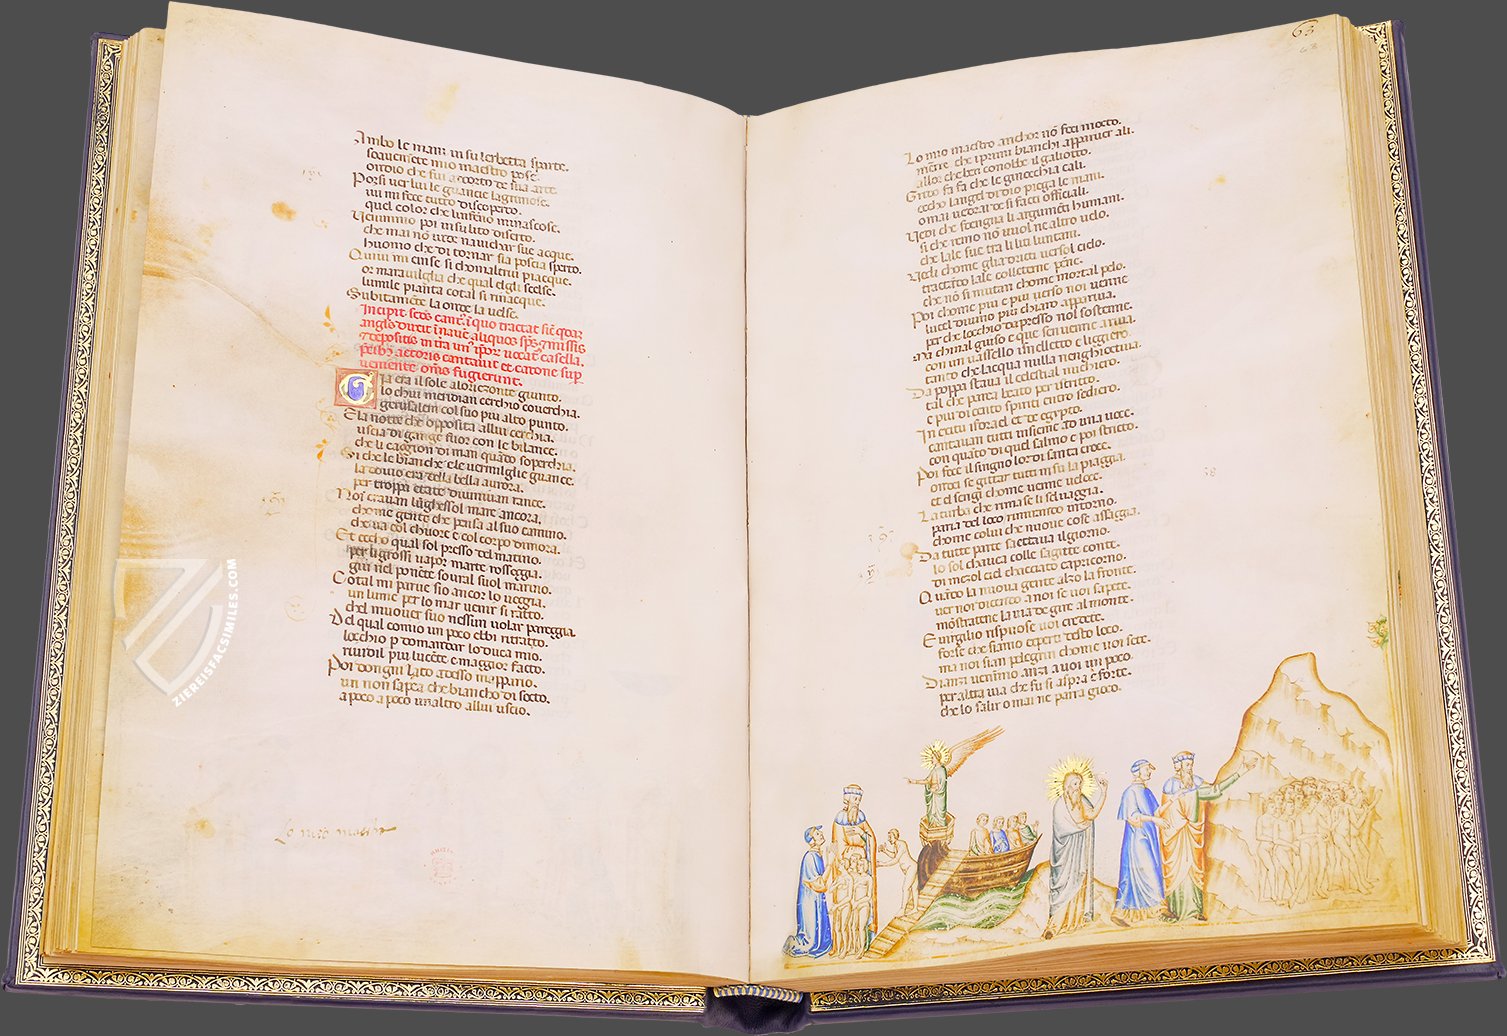 Ambo le mani in su lerbetta sparte.
soavemēte mio maestro pose.
ondio che fui accorto de sua arte
Porsi ver lui le guancie lagrimose.
ivi mi fece tutto discoperto.
quel color che linferno mi nascose.
Venimmo poi in su lito diserto.
che mai nō vide navichar sue acque.
huomo che di tornar sia poscia sperto.
Quivi mi cinse si chomaltrui piacque.
o maraviglia che qual elgli scelse.
lumile pianta cotal si rinacque.
Subitamēte la onde la velse.
Gia era il sole alorizonte giunto.
lo chui meridian cerchio coverchia.
gerusalem col suo piu alto punto.
E la notte che opposita allui cerchia.
uscia di gange fuor con le bilance.
che li caggion di man quādo soperchia.
Si che le bianche e le vermiglie guance.
la dovio era della bella aurora.
per troppa etate divenivan rance.
Noi eravam lūghessol mare ancora.
chome gente che pensa al suo camino.
che va col chuore e col corpo dimora.
Et eccho qual sol presso del matino.
per li grossi vapor marte rosseggia.
giu nel ponēte sovral suol marino.
Cotal mi parve sio ancor lo veggia.
un lume per lo mar venir si ratto.
chel muover suo nessun volar pareggia.
Del qual comio un poco ebbi ritratto.
locchio p domandar lo duca mio.
rividil piu lucēte e maggior facto.
Poi dongni lato adesso mappario.
un non sapea che biancho di socto.
a poco a poco unaltro allui uscio.
Lo mio maestro
ZIEREISFACSIMILES.COM
63
63
Lo mio maestro anchor nō feci mocto.
mētre che i primi bianchi apparver ali.
allor che ben conobbe il galiotto.
Grido fa fa che le ginocchia cali.
eccho langel di dio piega le mani.
omai vedrai de si facti officiali.
Vedi che sdengna li argumēti humani.
si che remo nō vuol ne altro velo.
che lale sue tra li liti luntani.
Vedi chome gli a dricti verso l cielo.
tractādo lale colleterne pēne.
che nō si mutan chome mortal pelo.
Poi chome piu e piu verso noi venne
lucel divino piu chiaro appariva.
per che locchio da presso nol sostenne.
Ma chinal giuso e que sen venne a riva.
con un vasello snelletto e leggiero.
tanto che lacqua nulla nenghiottiva.
Da poppa stava il celestial nochiero.
tal che parea beato per iscritto.
e piu di cento spiriti entro sediero.
In exitu israel de egypto.
cantavan tutti insieme ad una voce.
con quāto di quel salmo e poi scricto.
Poi fece il singno lor di santa croce.
ondei se gittar tutti in su la piaggia.
et el sengi chome venne veloce.
La turba che rimase li selvaggia.
parea del loco rimirando intorno.
chome colui che nuove cose assaggia.
38
Da tutte parte saettava il giorno.
lo sol chavea colle sagitte conte.
di mezol ciel chacciato capricorno.
Quādo la nuova gente alzo la fronte.
ver noi dicendo a noi se voi sapete.
mostratene la via de gire al monte.
E virgilio rispuose voi credete.
forse che siamo experti desto loco.
ma noi siam pelegrin chome voi sete.
Dianzi venimo anzi a voi un poco.
per altra via che fu si aspra e forte.
che lo salir omai ne parra gioco.